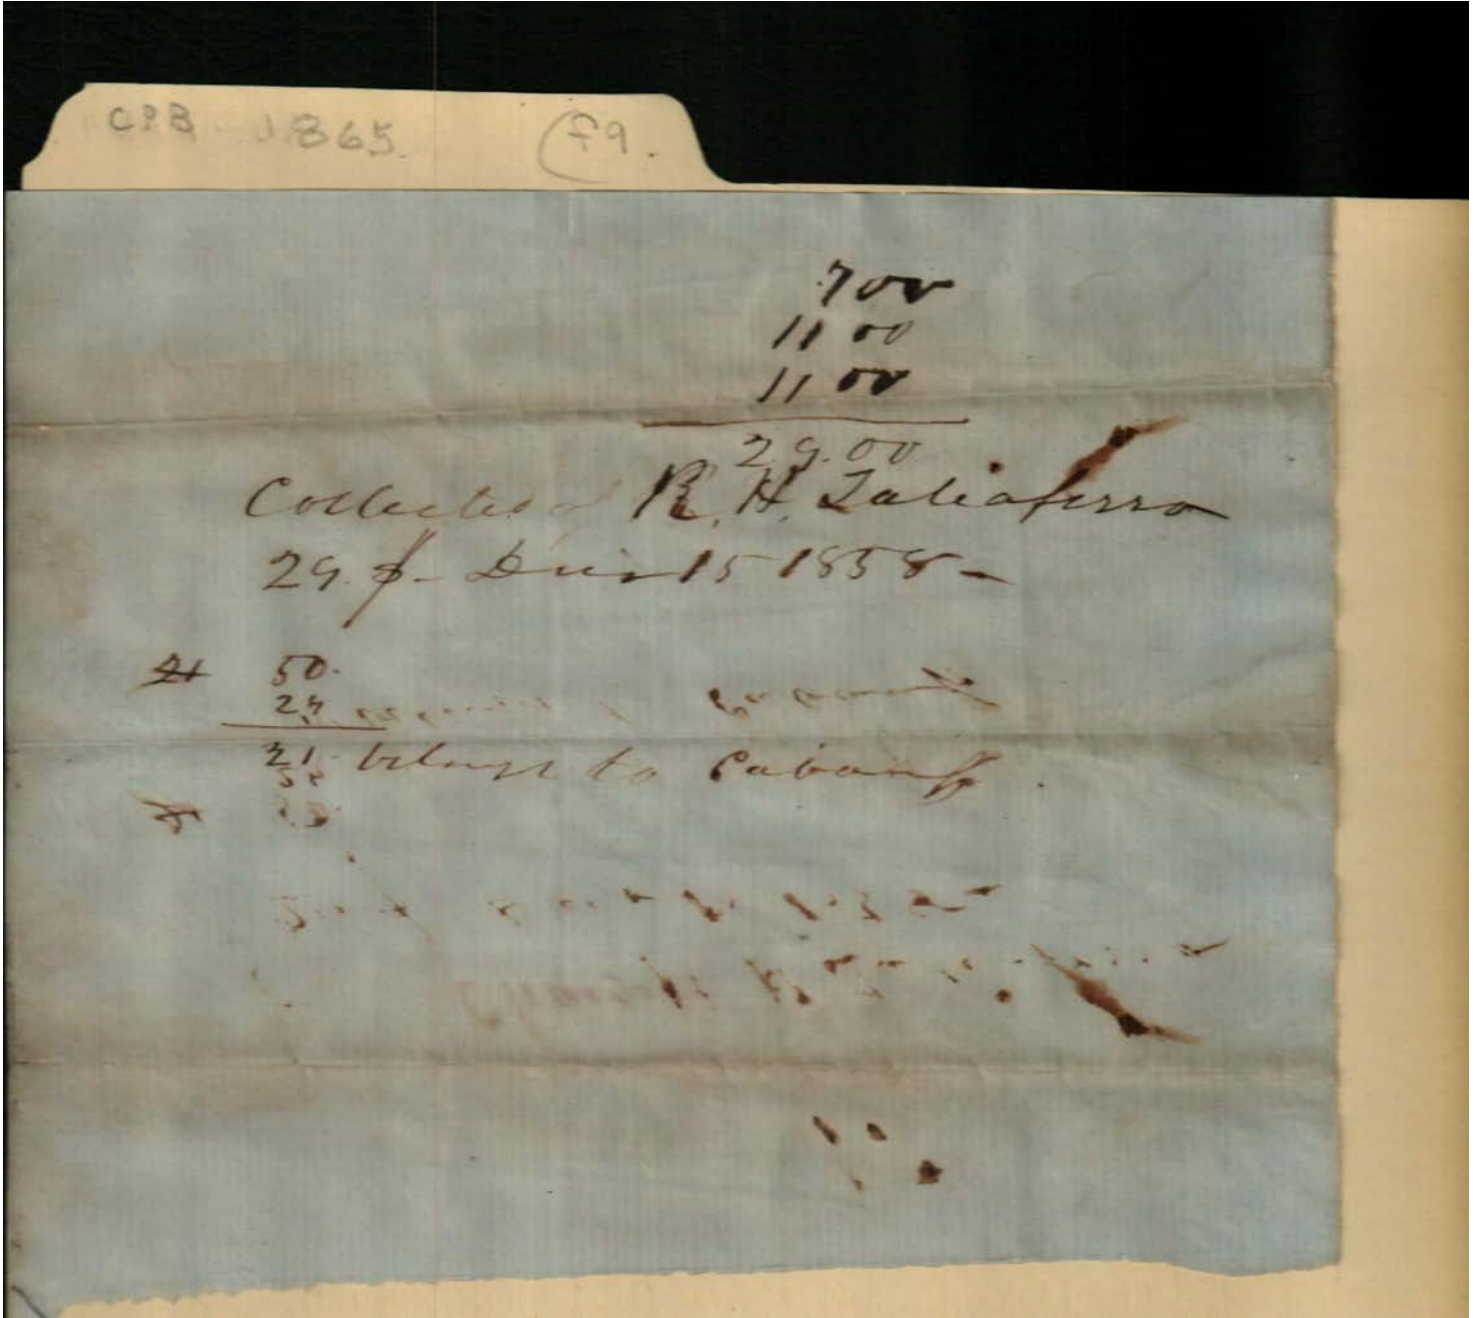 CPB 1865. (f9.
7 00
11 00
11 00
29.00
Collected of R. H. Taliaferro
29.$ - Decr 15 1858 -
50.
29
21 belongs to